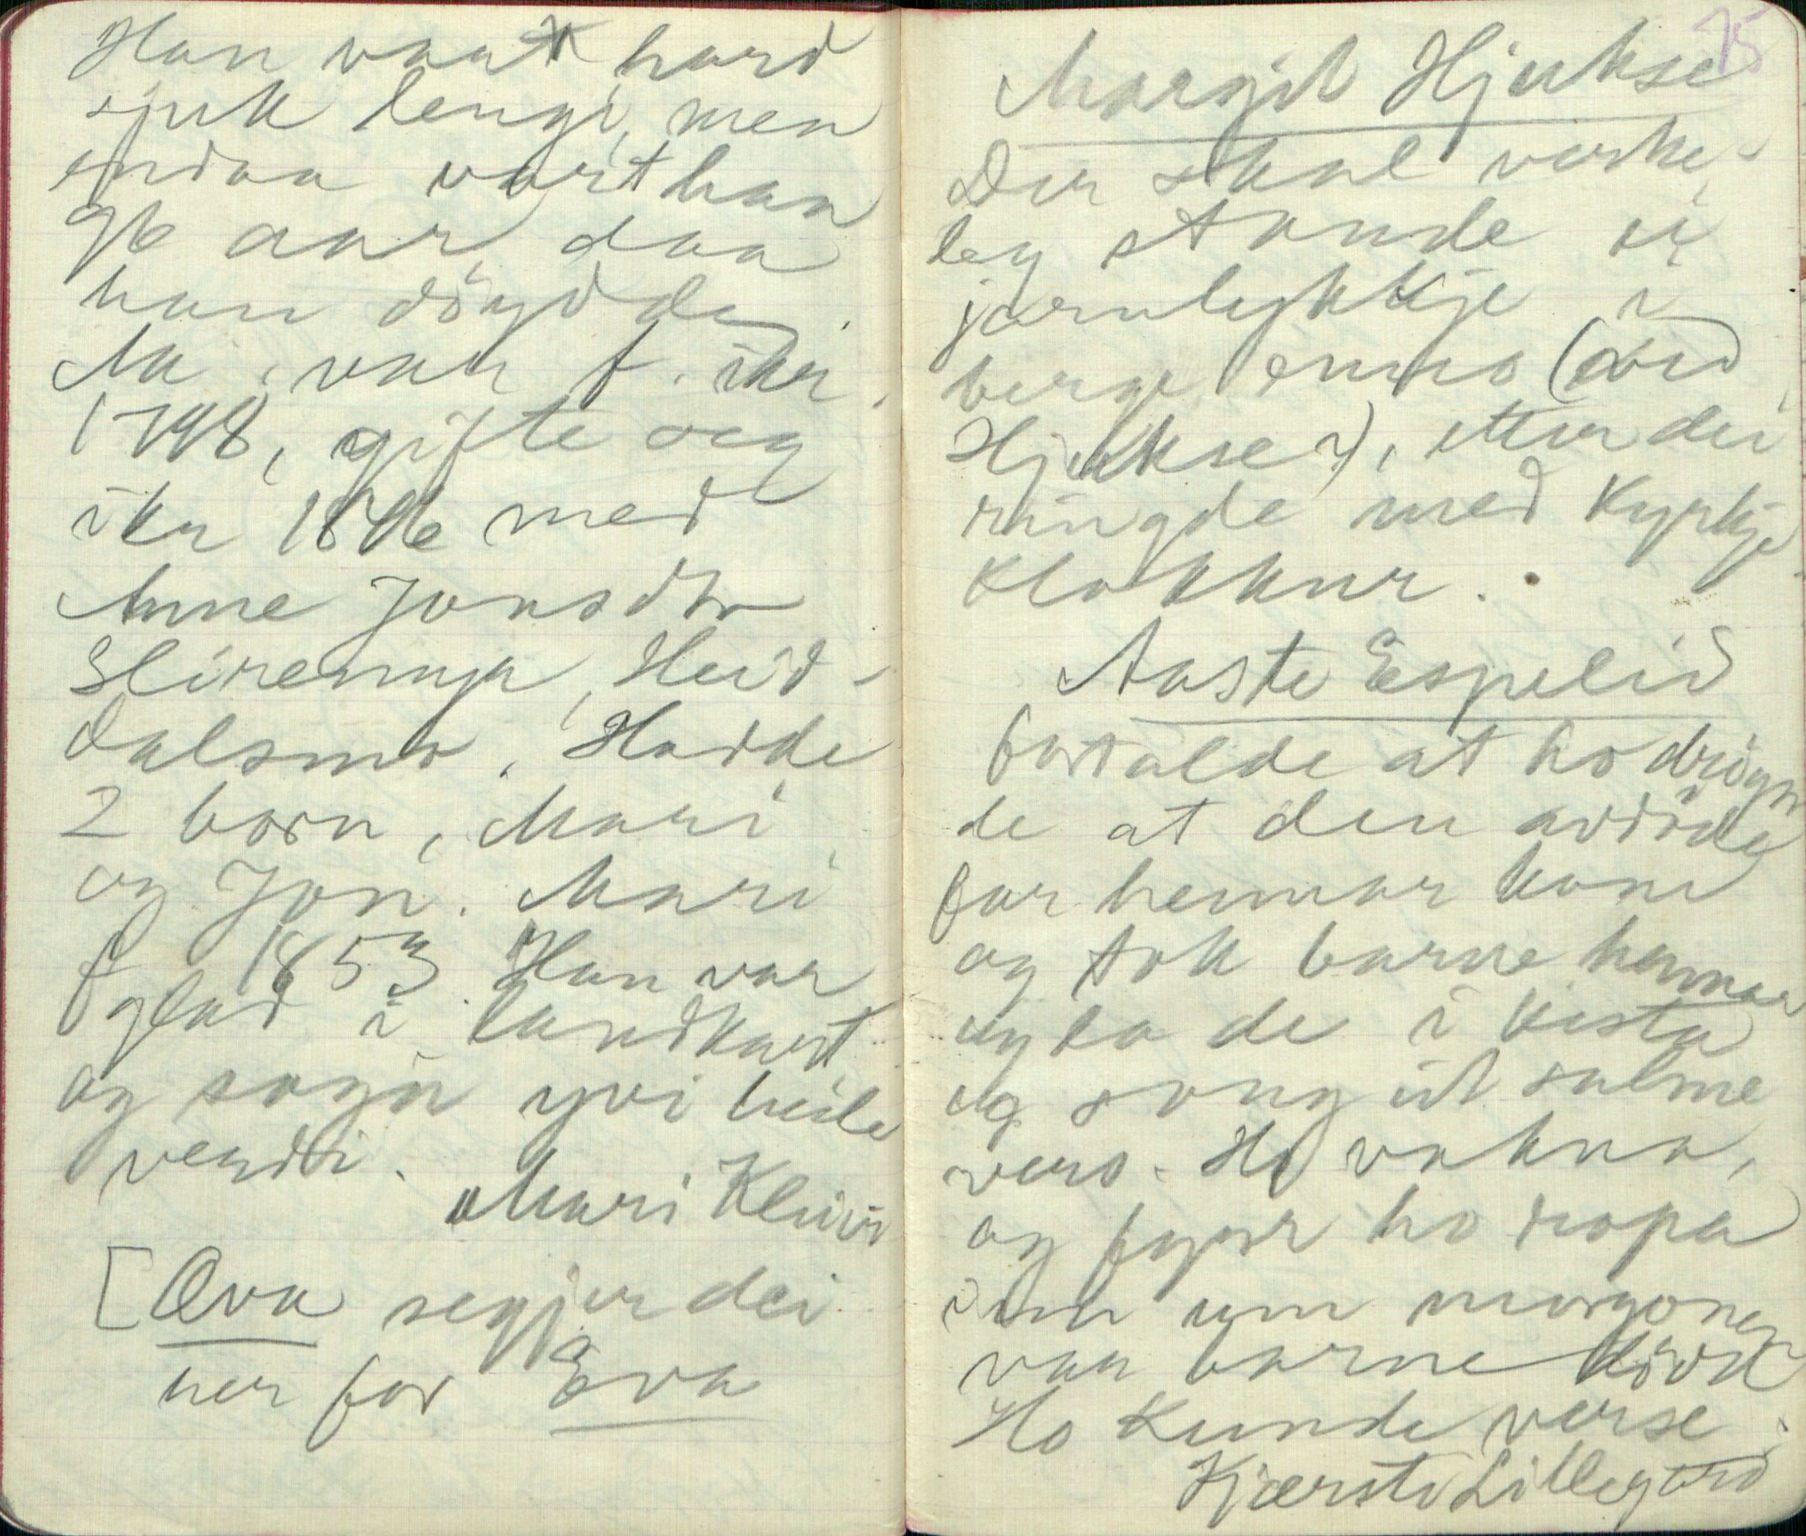 Han vart hard
sjuk lengi, men
endaa vart han
96 aar, daa
han döydde.
Ma. var f. ikr.
1798, gifte seg
ikr 1846 med
Anne Jonsdtr
Sliremyr, Heid-
dalsmo. Hadde
2 born, Mari
og Jon. Mari
f 1853. Han var
glad i landkart
og sogu yvi heile
verdi.
Mari Kleivi
[Ova segjer dei
her for Eva
75
Margit Hjukse
Der skal verke-
leg stande ei
jarnlykkje i
berge enno (ved
Hjukse?), etter dei
ringde med Kyrkje
klokkur.
Aaste Espelid
fortalde at ho dröym
de at den avdöde
far hennar kom
og tok barne hennar
og la de i kista
og song eit salme
vers. Ho vakna,
og fyrr ho ropa
inn um morgonen
var barne
Ho kunde verse
Kjærsti Lillegård